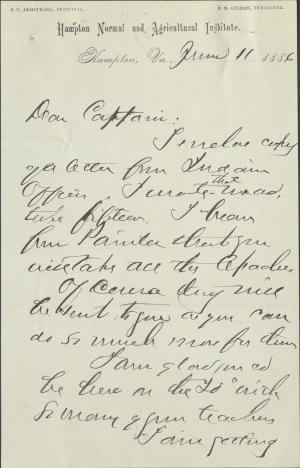 S. C. ARMSTRONG, PRINCIPAL.
F. N. GILMAN, TREASURER.
Hampton Normal and Agricultural Institute.
Hampton, Va., June 11 1886
Dear Captain:
I enclose copy
of a letter from Indian
Office. I wrote that
take fifteen. I hear
from Painter that you
will take all the Apaches
Of course they will
be sent to you as you can
do so much more for them
I am glad you
be here on the 20" with
so many of your teachers
I am getting